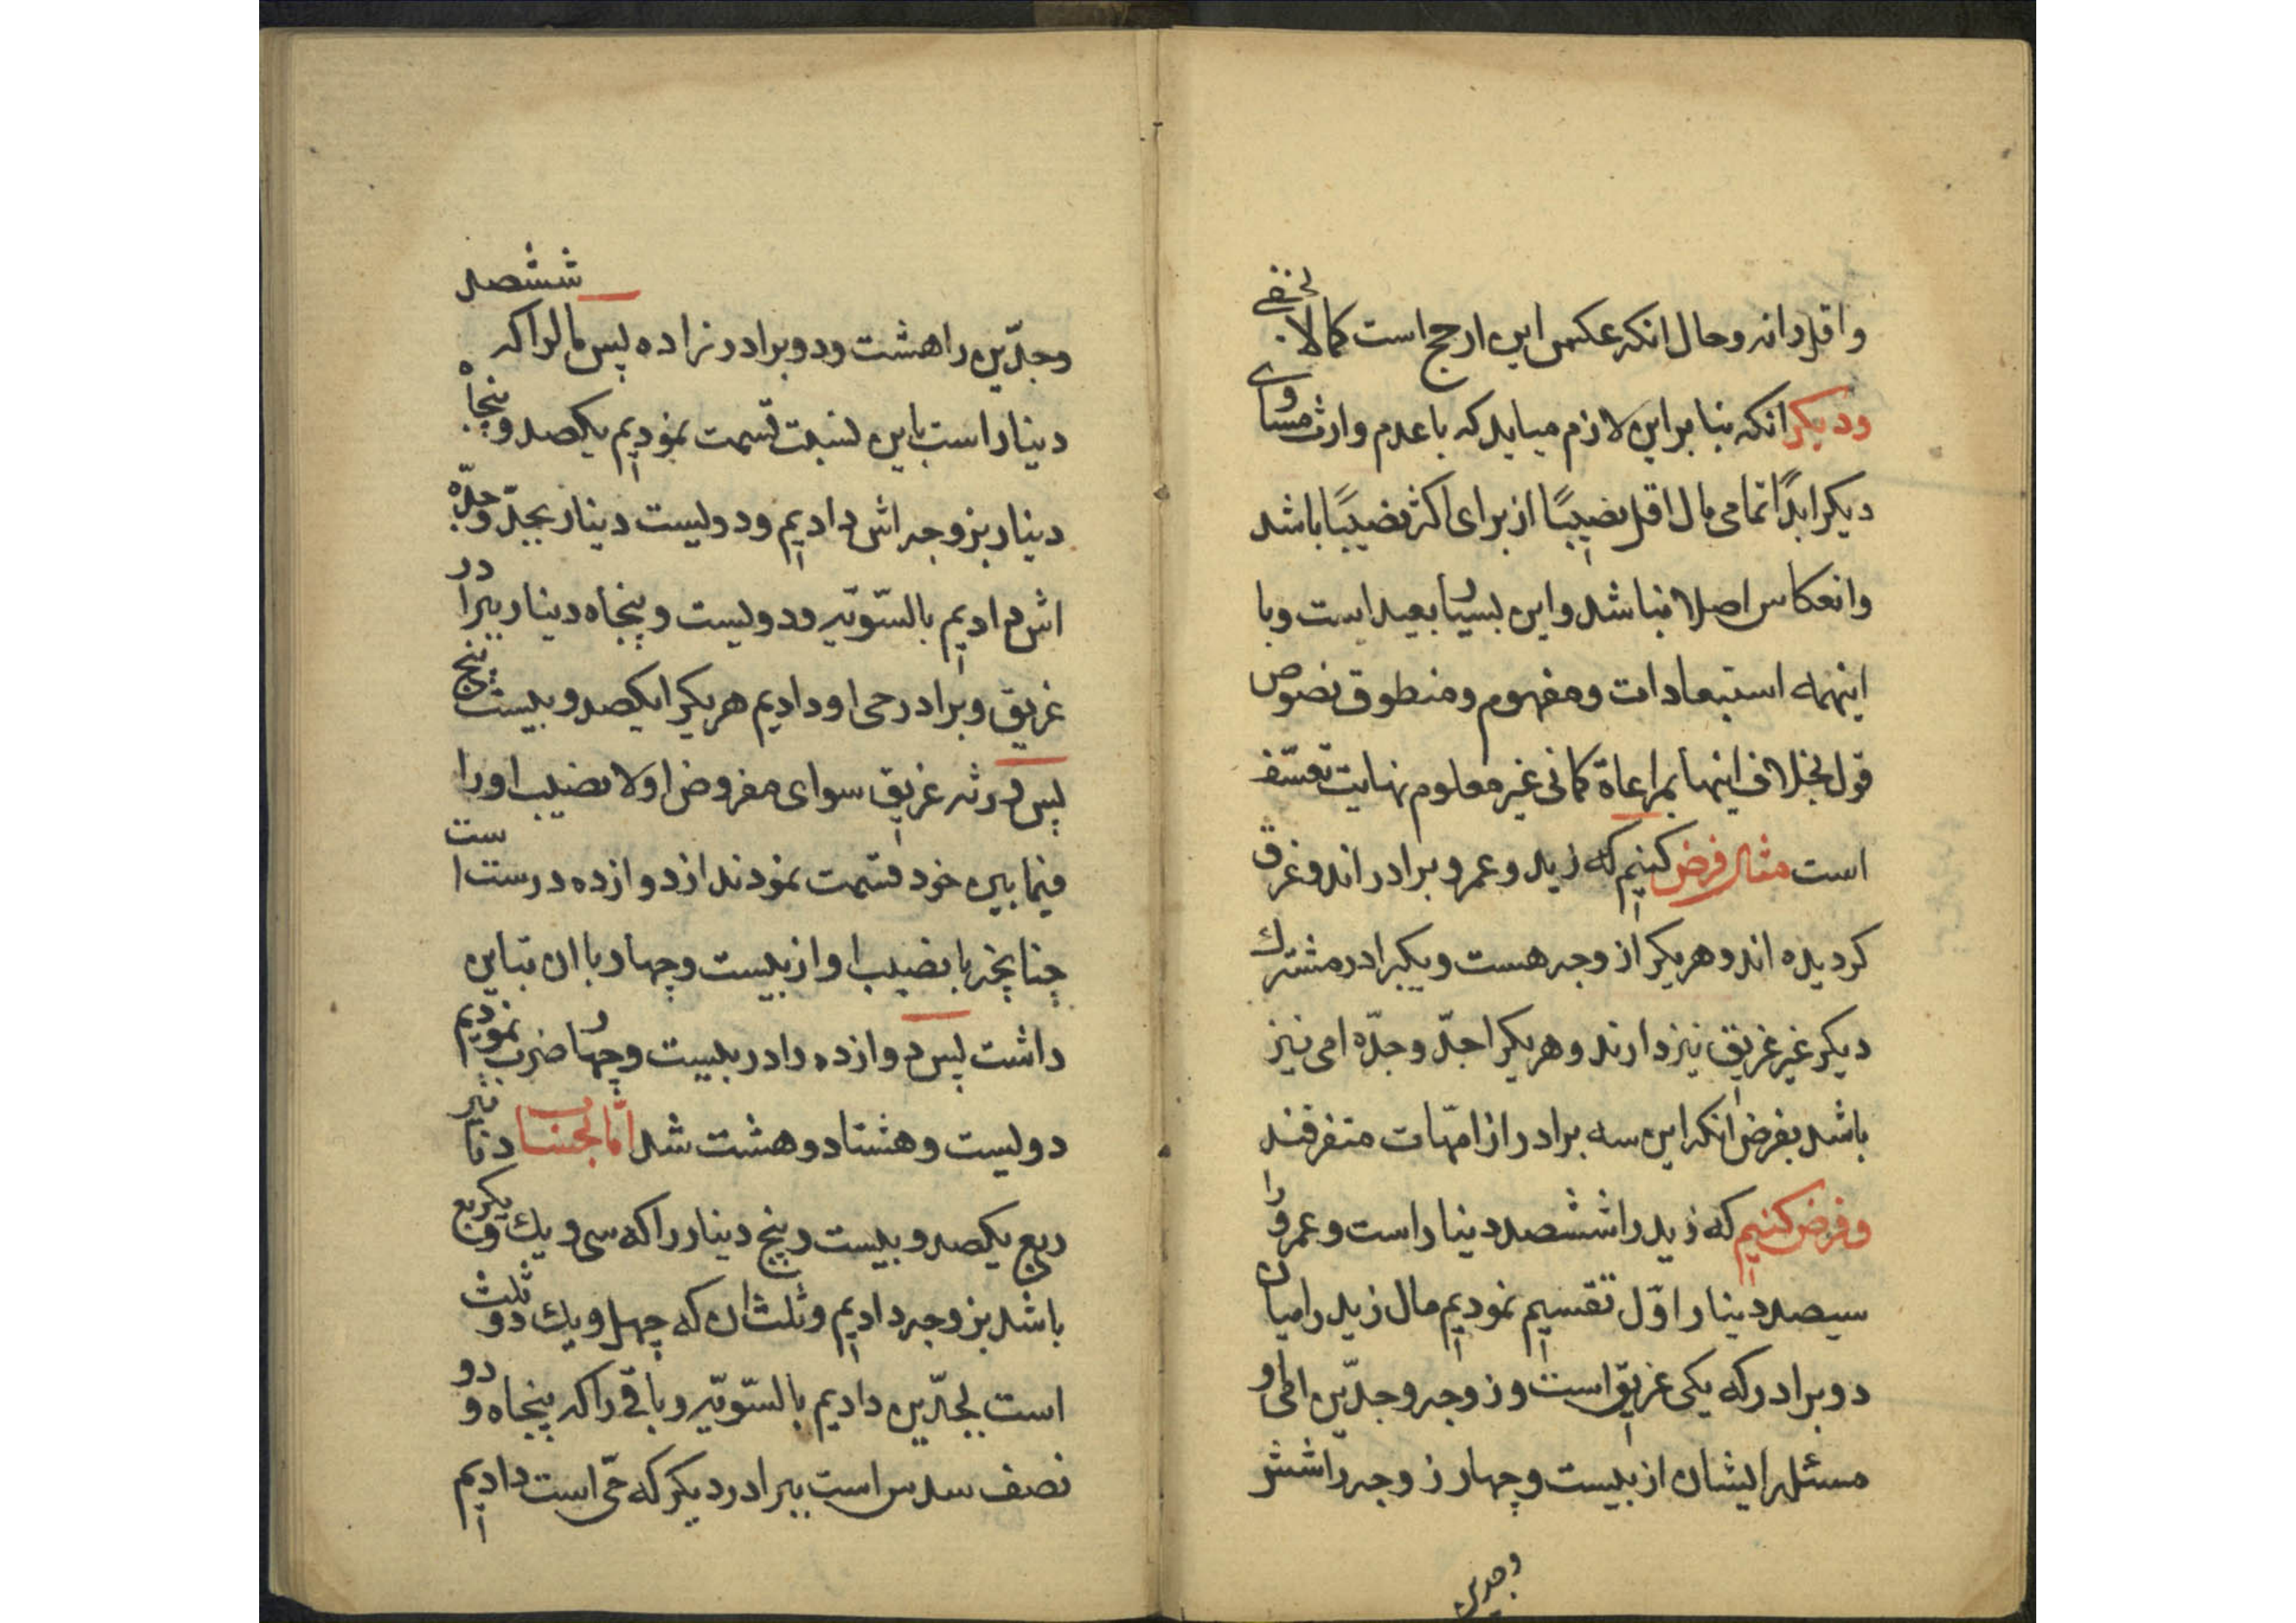 واقل دانه وحال انکه عکس این ارجح است کمالا یخفی
ودیکر انکه بنا براین لازم میاید که با عدم وارث مساوی
دیکر ابدًا تمامی مال اقل نصیبًا از برای اکثر نصیبًا باشد
وانعکاس اصلا نباشد واین بسیار بعید است وبا
اینهمه استبعادات ومفهوم ومنطوق نصوص
قول بخلاف اینها بمراعاة کمانی غیر معلوم نهایت تعسّف
است مثال فرض کنیم که زید وعمرو برادراند وغرق
کردیده اند وهریکرا زوجه هست ویکبرادر مشترك
دیکر غیر غریق نیز دارند وهریکرا جدّ وجدّه امی نیز
باشد بفرض انکه این سه برادر از امّهات متفرقند
وفرض کنیم که زید را ششصد دینار است وعمرو را
سیصد دینار اوّل تقسیم نمودیم مال زید را میان
دو برادر که یکی غریق است وزوجه وجدّین امی او
مسئله ایشان از بیست وچهار زوجه را شش
وجدین
وجدّین را هشت ودو برادر نزاده پس مالرا که ششصد
دینار است باین نسبت قسمت نمودیم یکصد وپنجاه
دینار بزوجه اش دادیم ودویست دینار بجدّ وجدّه
اش دادیم بالسّویّه ودویست وپنجاه دینار ببرادر
غریق وبرادر حی او دادیم هریکرا یکصد وبیست پنج
پس ورثه غریق سوای مفروض اولا نصیب او را
فیما بین خود قسمت نمودند از دوازده درست است
چنانچه با نصیب او از بیست وچهار با ان تباین
داشت پس دوازده را در بیست وچهار ضرب نمودیم
دویست وهشتاد وهشت شد امّا بحساب دنانیر
ربع یکصد وبیست وپنج دینار را که سی ویك ویکربع
باشد بزوجه دادیم وثلث ان که چهل ویك ودو ثلث
است بجدّین دادیم بالسّویّه وباقی را که پنجاه ودو
نصف سدس است ببرادر دیکر که حّی است دادیم